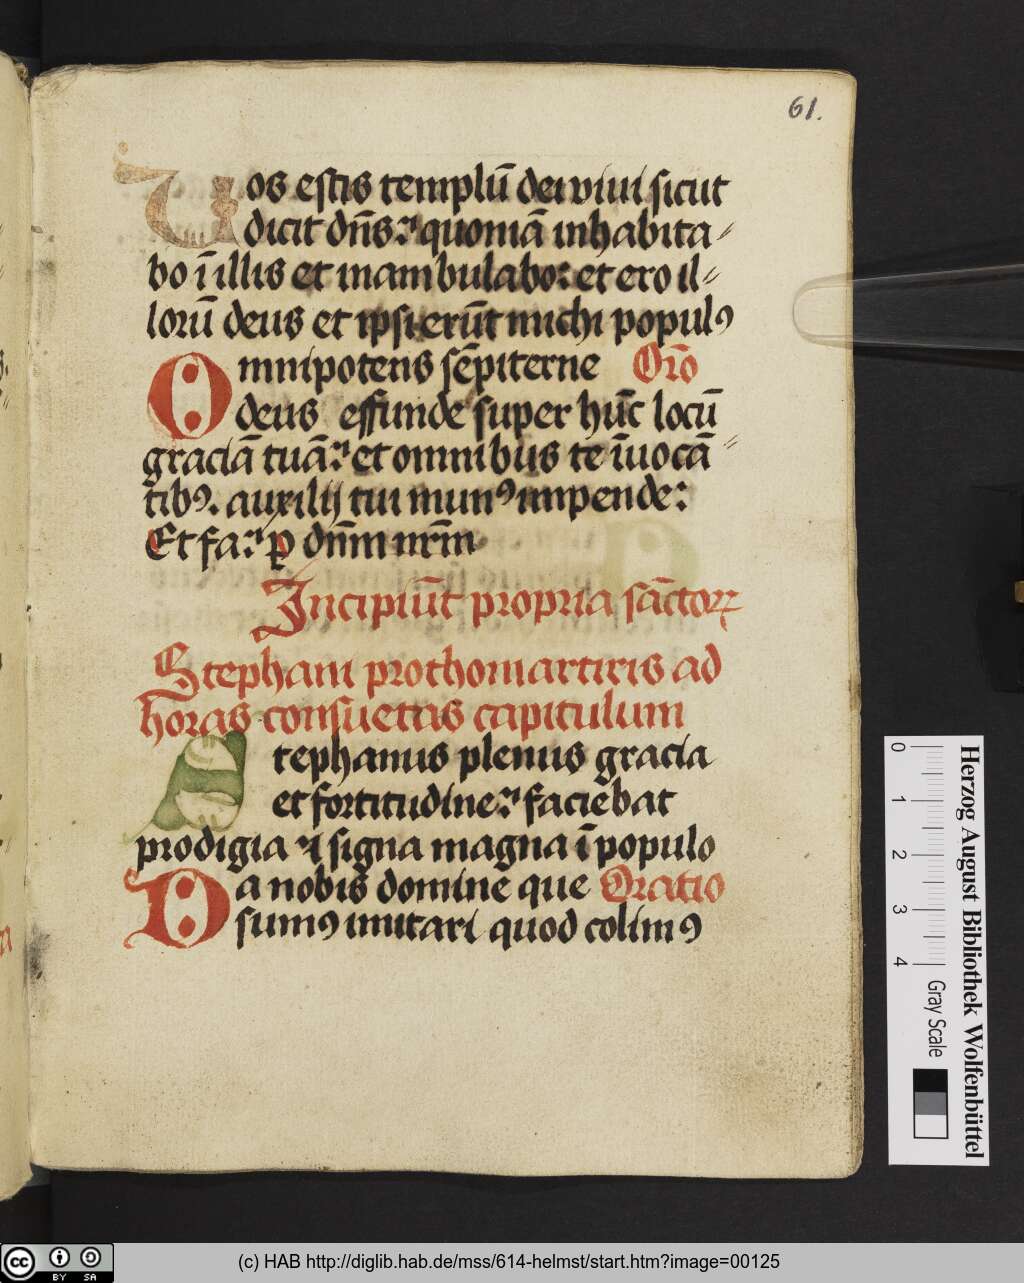 61.
Uos estis templū dei viui sicut
dicit dn̄s: quoniā inhabita⸗
bo ī illis et inambulabo: et ero il⸗
lorū deus et ipsi erūt michi populꝰ
Omnipotens sēpiterne Orō
deus effunde super hūc locū
graciā tuā: et omnibus te īuocā⸗
tibꝰ. auxilij tui munꝰ impende:
Et fa: ꝑ dn̄m nr̄m
Incipiūt propria sāctoꝝ
Stephani prothomartiris ad
horas consuetas capitulum
Stephanus plenus gracia
et fortitudine: faciebat
prodigia ⁊ signa magna ī populo
Da nobis domine que Oratio
sumꝰ imitari quod colimꝰ
0 1 2 3 4
Gray Scale
Herzog August Bibliothek Wolfenbüttel
cc BY SA
(c) HAB http://diglib.hab.de/mss/614-helmst/start.htm?image=00125